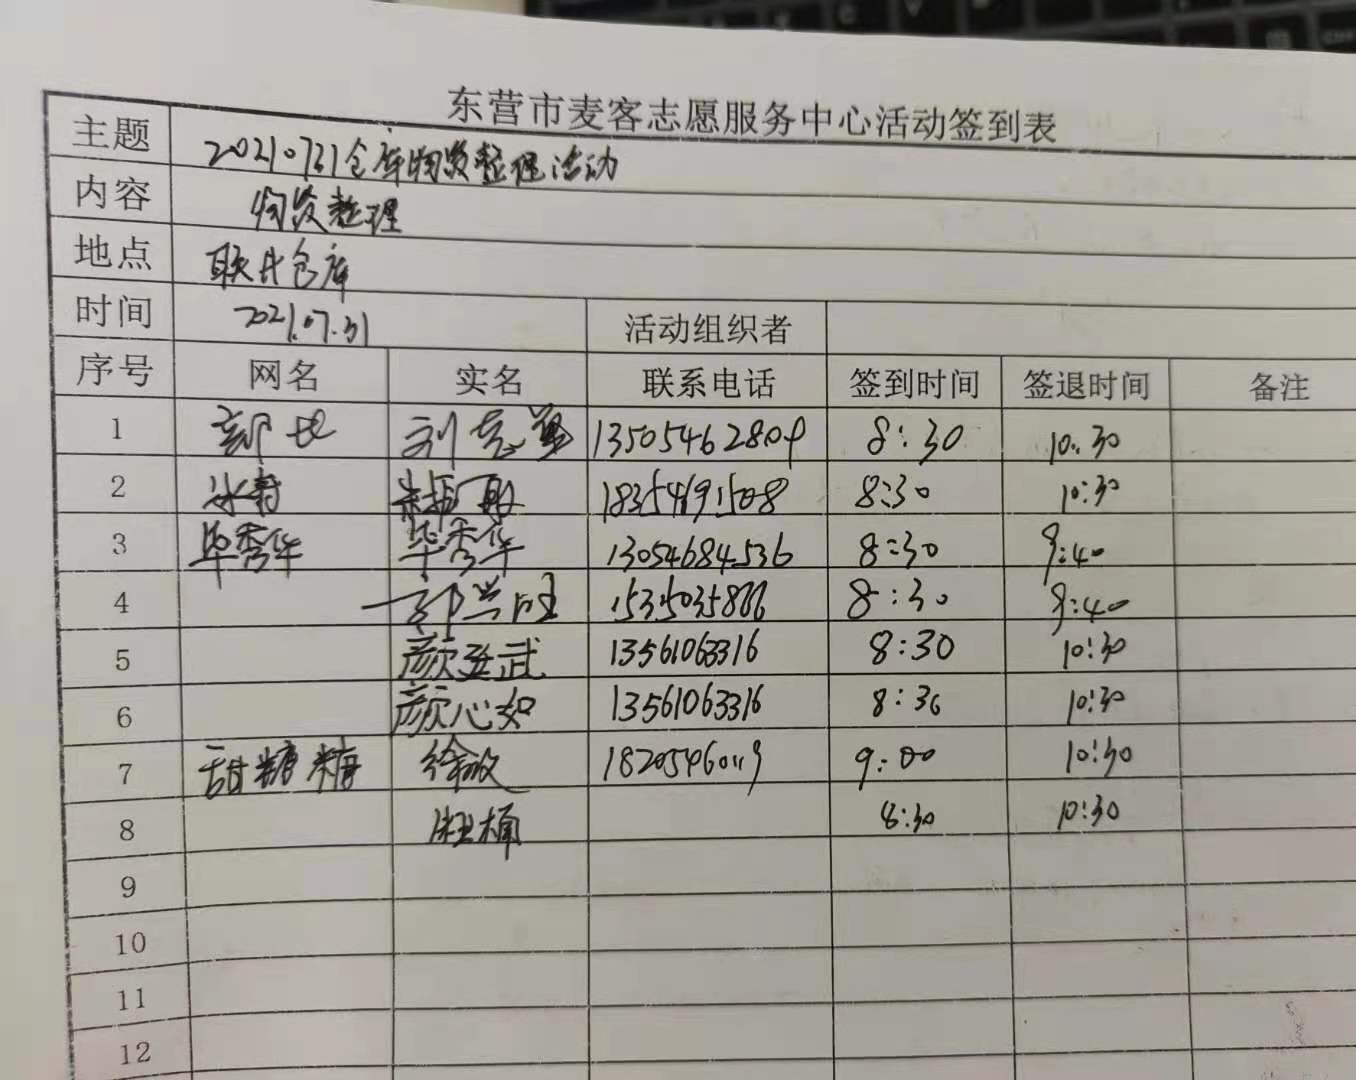 东营市麦客志愿服务中心活动签到表
主题 20210731仓库物资整理活动
内容 物资整理
地点 仓库
时间 2021.07.31 活动组织者
序号 网名 实名 联系电话 签到时间 签退时间 备注
1 刘 13505462809 8:30 10:30
2 8:30 10:30
3 毕秀华 毕秀华 13054684536 8:30 9:40
4 8:30 9:40
5 颜亚武 13561063316 8:30 10:30
6 颜心如 13561063316 8:30 10:30
7 甜糖糖 徐敏 9:00 10:30
8 8:30 10:30
9
10
11
12